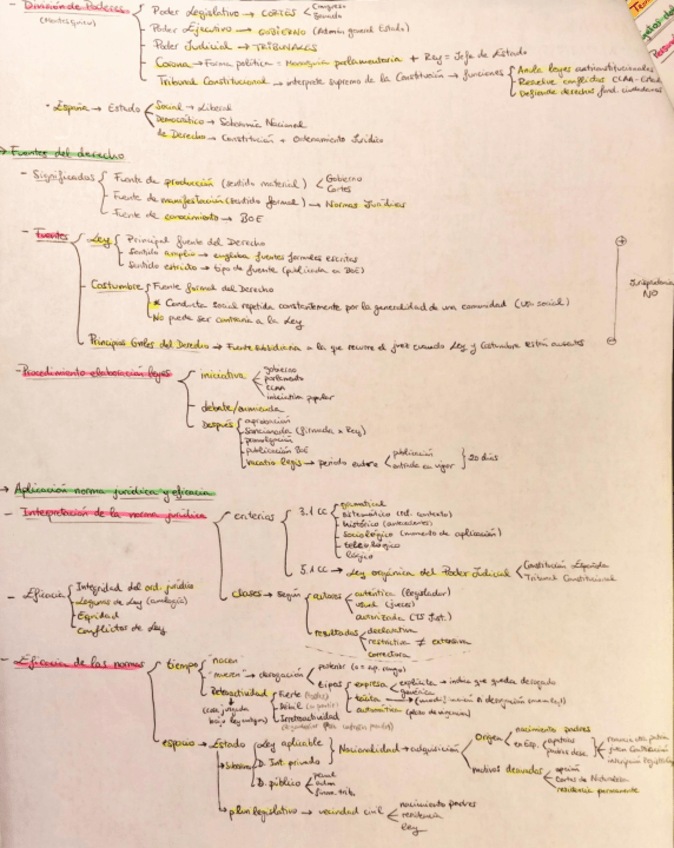 - División de Poderes
(Montesquieu)
Poder Legislativo → CORTES < Congreso
Senado
Poder Ejecutivo → GOBIERNO (Admin general Estado)
Poder Judicial → TRIBUNALES
Corona → Forma política = Monarquía parlamentaria + Rey = Jefe de Estado
Tribunal Constitucional → interprete supremo de la Constitución → funciones
Anula leyes anticonstitucionales
Resuelve conflictos CCAA-
Defiende derechos fund. ciudadanos
· España → Estado
Social → Liberal
Democrático → Soberanía Nacional
de Derecho → Constitución + Ordenamiento Jurídico
→ Fuentes del derecho
- Significados
Fuente de producción (sentido material) < Gobierno
Cortes
Fuente de manifestación (sentido formal) → Normas Jurídicas
Fuente de conocimiento → BOE
- Fuentes
Ley
Principal fuente del Derecho
Sentido amplio → engloba fuentes formales escritas
Sentido estricto → tipo de fuente (publicada en BOE)
Costumbre
Fuente formal del Derecho
* Conducta social repetida constantemente por la generalidad de una comunidad (Uso social)
No puede ser contraria a la Ley
Principios Gnles del Derecho → Fuente subsidiaria a la que recurre el juez cuando Ley y Costumbre están ausentes
+
Jurisprudencia
NO
-
- Procedimiento elaboración leyes
iniciativa
gobierno
parlamento
CCAA
iniciativa popular
debate/enmienda
Después
aprobación
sancionada (firmada x Rey)
promulgación
publicación BOE
vacatio legis → periodo entre < publicación
entrada en vigor } 20 días
→ Aplicación norma jurídica y eficacia
- Interpretación de la norma jurídica
criterios
3.1 CC
gramatical
sistemático (rel. contexto)
histórico (antecedentes)
sociológico (momento de aplicación)
teleológico
lógico
5.1 CC → Ley orgánica del Poder Judicial < Constitución Española
Tribunal Constitucional
clases → según
autores
auténtica (legislador)
usual (jueces)
autorizada (TS Just.)
resultados
declarativa
restrictiva ≠ extensiva
correctora
- Eficacia
Integridad del ord. jurídico
Lagunas de Ley (analogía)
Equidad
Conflictos de Ley
- Eficacia de las normas
tiempo
nacen
"mueren" → derogación
posterior (= o sup. rango)
tipos
expresa
explícita → indica que queda derogado
genérica
tácita →
automática (plazo de vigencia)
Retroactividad
bajo ley antigua)
Fuerte
Débil
Irretroactividad
espacio → Estado
Ley aplicable
D. Int. privado
D. público
penal
adm
financ. trib.
Nacionalidad → adquisición
Origen
nacimiento padres
en Esp.
apátridas
padres desc.
jurar Constitución
inscripción Registro
motivos derivados
opción
Cartas de Naturaleza
residencia permanente
plurilegislativo → vecindad civil
nacimiento padres
residencia
ley